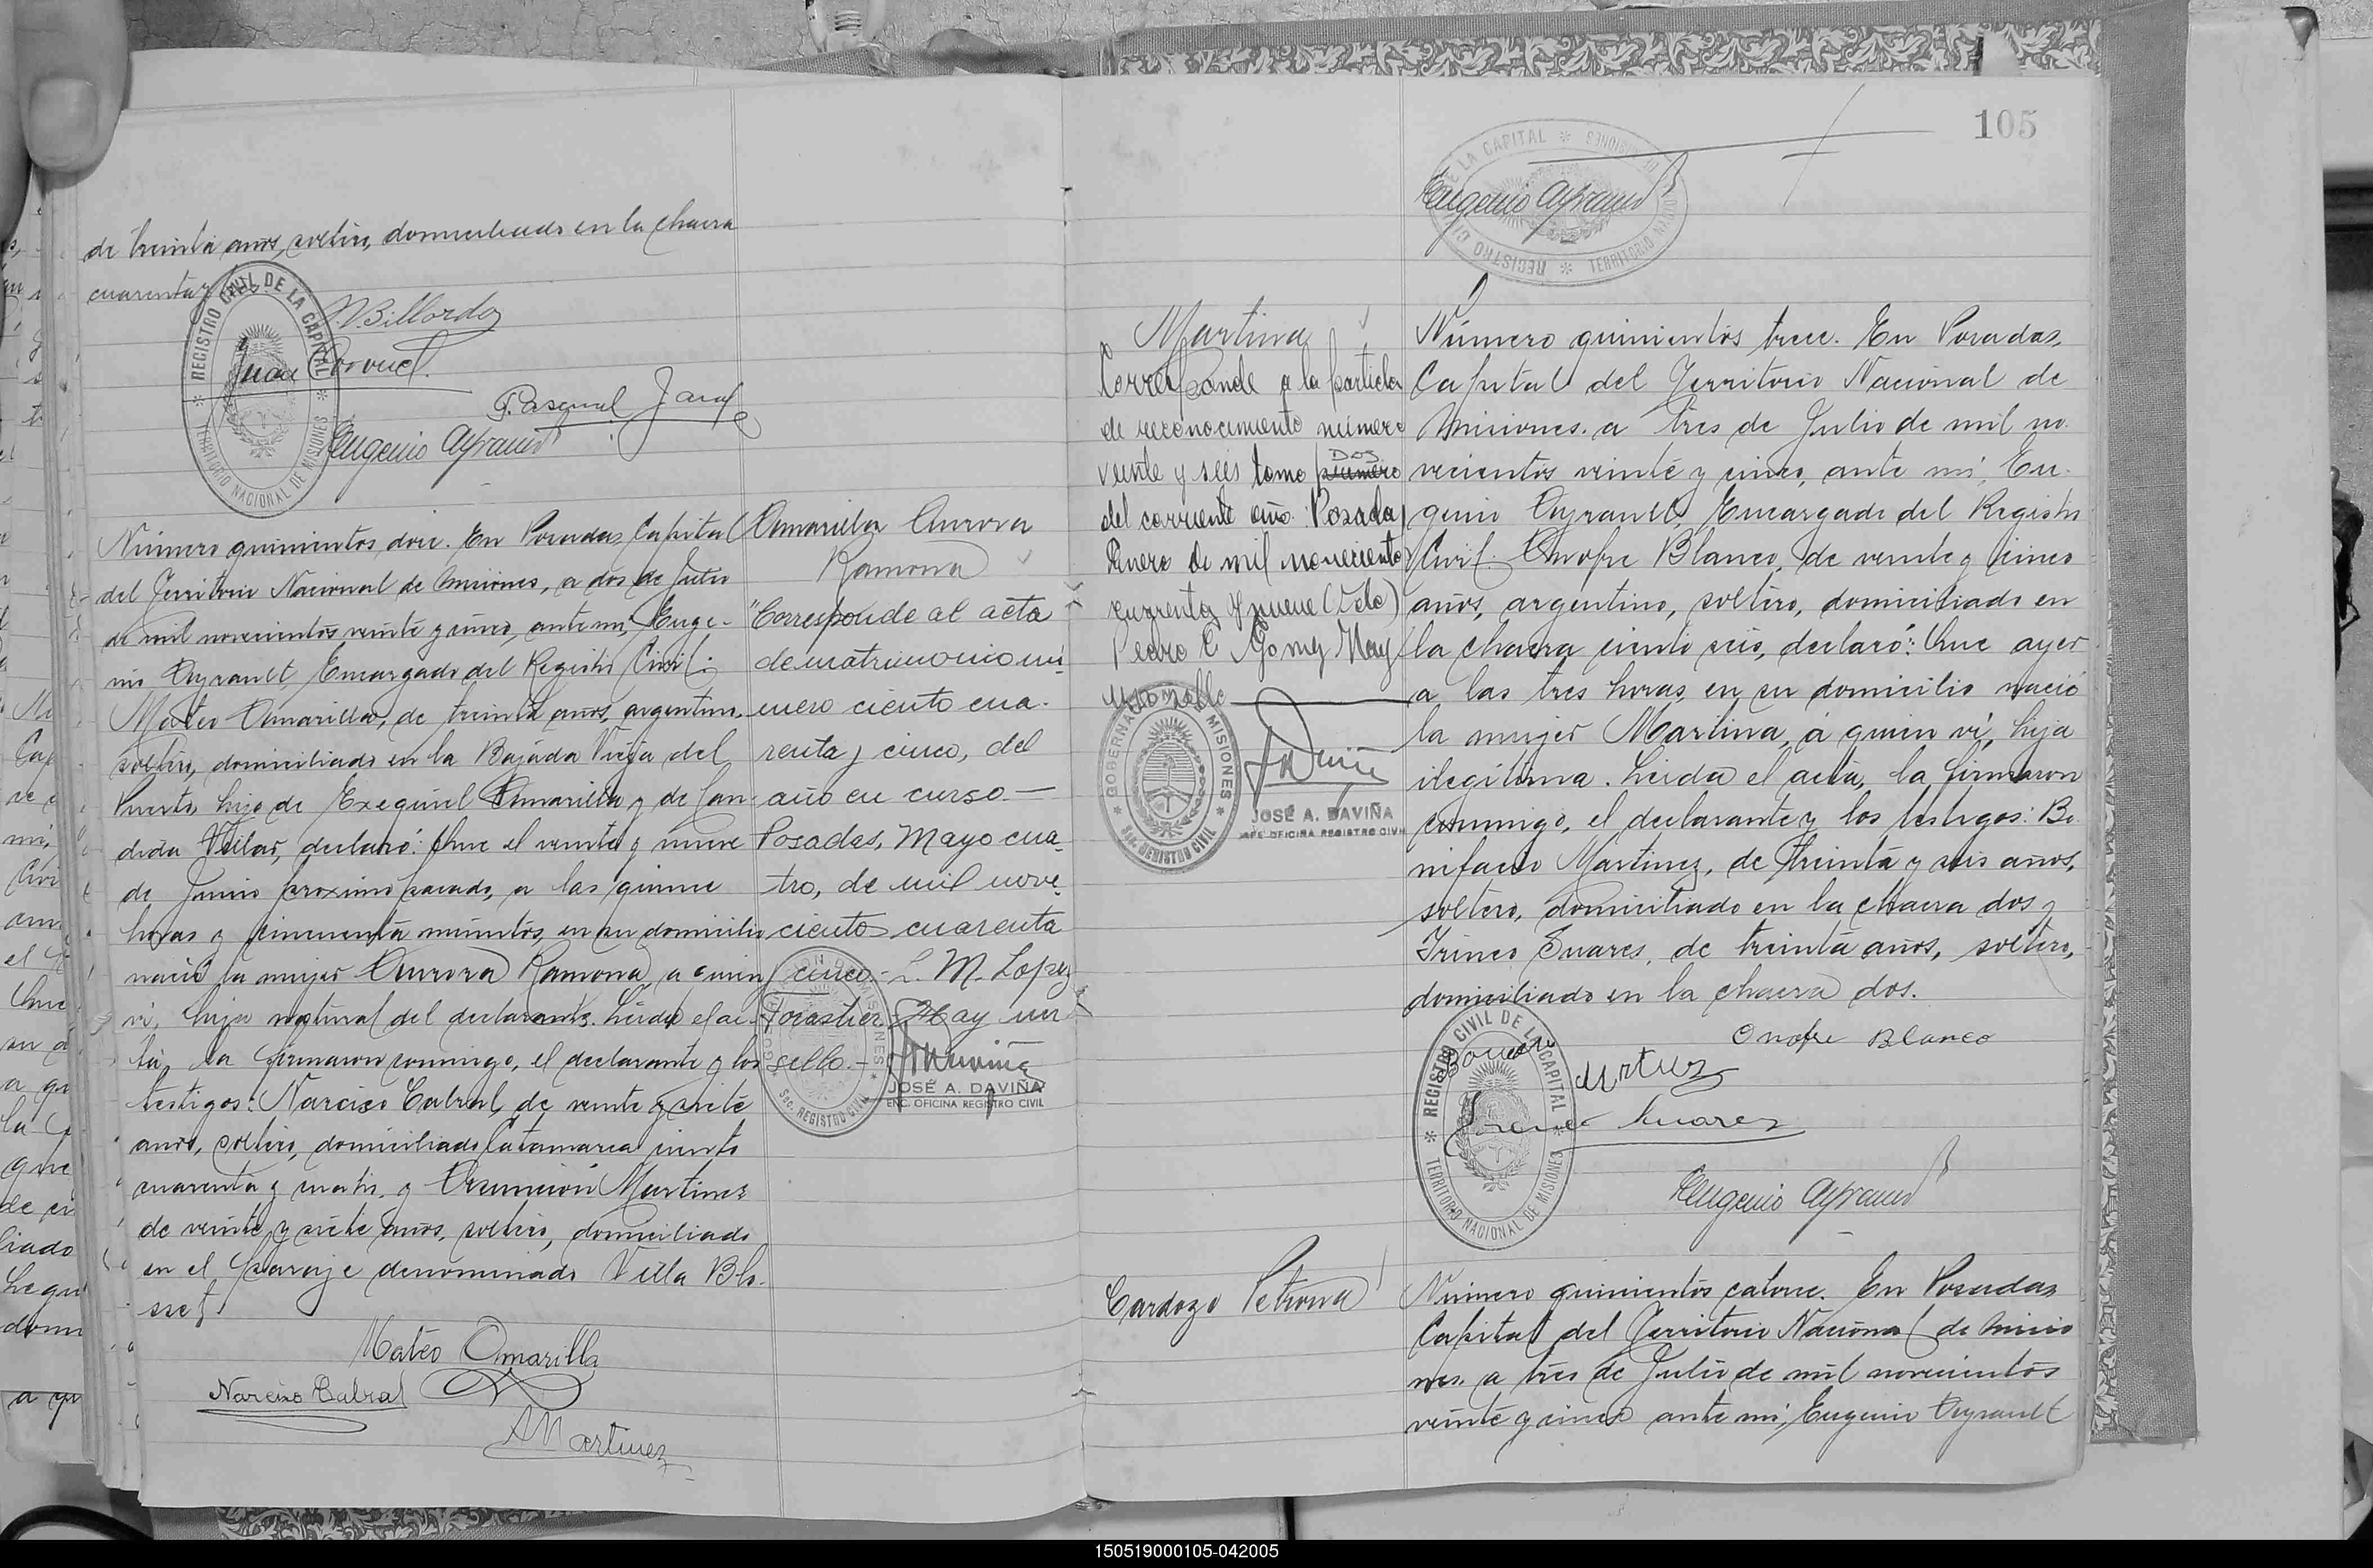 de treinta años, soltero, domiciliado en la chacra
cuarenta y tres
REGISTRO CIVIL DE LA CAPITAL
TERRITORIO NACIONAL DE MISIONES
Billordo
Juan Coronel.
Pascual
Eugenio Ayrault
Número quinientos doce. En Posadas, Capital
del Territorio Nacional de Misiones, a dos de Julio
de mil novecientos veinte y cinco, ante mi, Euge-
nio Ayrault, Encargado del Registro Civil:
Mateo Amarilla, de treinta años, argentino,
soltero, domiciliado en la Bajada Vieja del
Puerto, hijo de Exequiel Amarilla y de Can-
dida Vilar, declaró: Que el veinte y nueve
de Junio proximo pasado, a las quince
horas y cincuenta minutos, en su domicilio
nació la mujer Aurora Ramona, a quien
vi, hija natural del declarante. Leida el ac-
ta, la firmaron conmigo, el declarante y los
testigos: Narciso Cabral, de veinte y siete
años, soltero, domiciliado Catamarca ciento
cuarenta y cuatro, y Asunción Martinez
de veinte y siete años, soltero, domiciliado
en el paraje denominado Villa Blo-
sset.
Mateo Amarilla
Narciso Cabral
A Martinez
Amarilla Aurora
Ramona
"Corresponde al acta
de matrimonio nú-
mero ciento cua-
renta y cinco, del
año en curso.—
Posadas, Mayo cua-
tro, de mil nove-
cientos cuarenta
y cinco.- L. M. Lopez
Forastier. Hay un
sello.-
JOSÉ A. DAVIÑA
ENC. OFICINA REGISTRO CIVIL
Sec. REGISTRO CIVIL
105
DE LA CAPITAL
REGISTRO CIVIL
TERRITORIO NACIONAL DE MISIONES
Eugenio Ayrault
Martina
Corresponde a la partida
de reconocimiento número
veinte y seis tomo primero
DOS
del corriente año. Posadas
Enero de mil novecientos
cuarenta y nueve (Fdo)
Pedro C. Gomez Hay
un sello
GOBERNACION MISIONES
Sec. REGISTRO CIVIL
JOSÉ A. DAVIÑA
JEFE OFICINA REGISTRO CIVIL
Número quinientos trece. En Posadas,
Capital del Territorio Nacional de
Misiones, a tres de Julio de mil no-
vecientos veinte y cinco, ante mi, Eu-
genio Ayrault, Encargado del Registro
Civil: Onofre Blanco, de veinte y cinco
años, argentino, soltero, domiciliado en
la chacra ciento seis, declaró: Que ayer
a las tres horas, en su domicilio nació
la mujer Martina, á quien ví, hija
ilegítima. Leida el acta, la firmaron
conmigo, el declarante y los testigos: Bo-
nifacio Martinez, de treinta y seis años,
soltero, domiciliado en la chacra dos y
Irineo Suares, de treinta años, soltero,
domiciliado en la chacra dos.
Onofre Blanco
REGISTRO CIVIL DE LA CAPITAL
TERRITORIO NACIONAL DE MISIONES
Suarez
Eugenio Ayrault
Cardozo Petrona
Número quinientos catorce. En Posadas
Capital del Territorio Nacional de Misio
nes, a tres de Julio de mil novecientos
veinte y cinco ante mi, Eugenio Ayrault
150519000105-042005